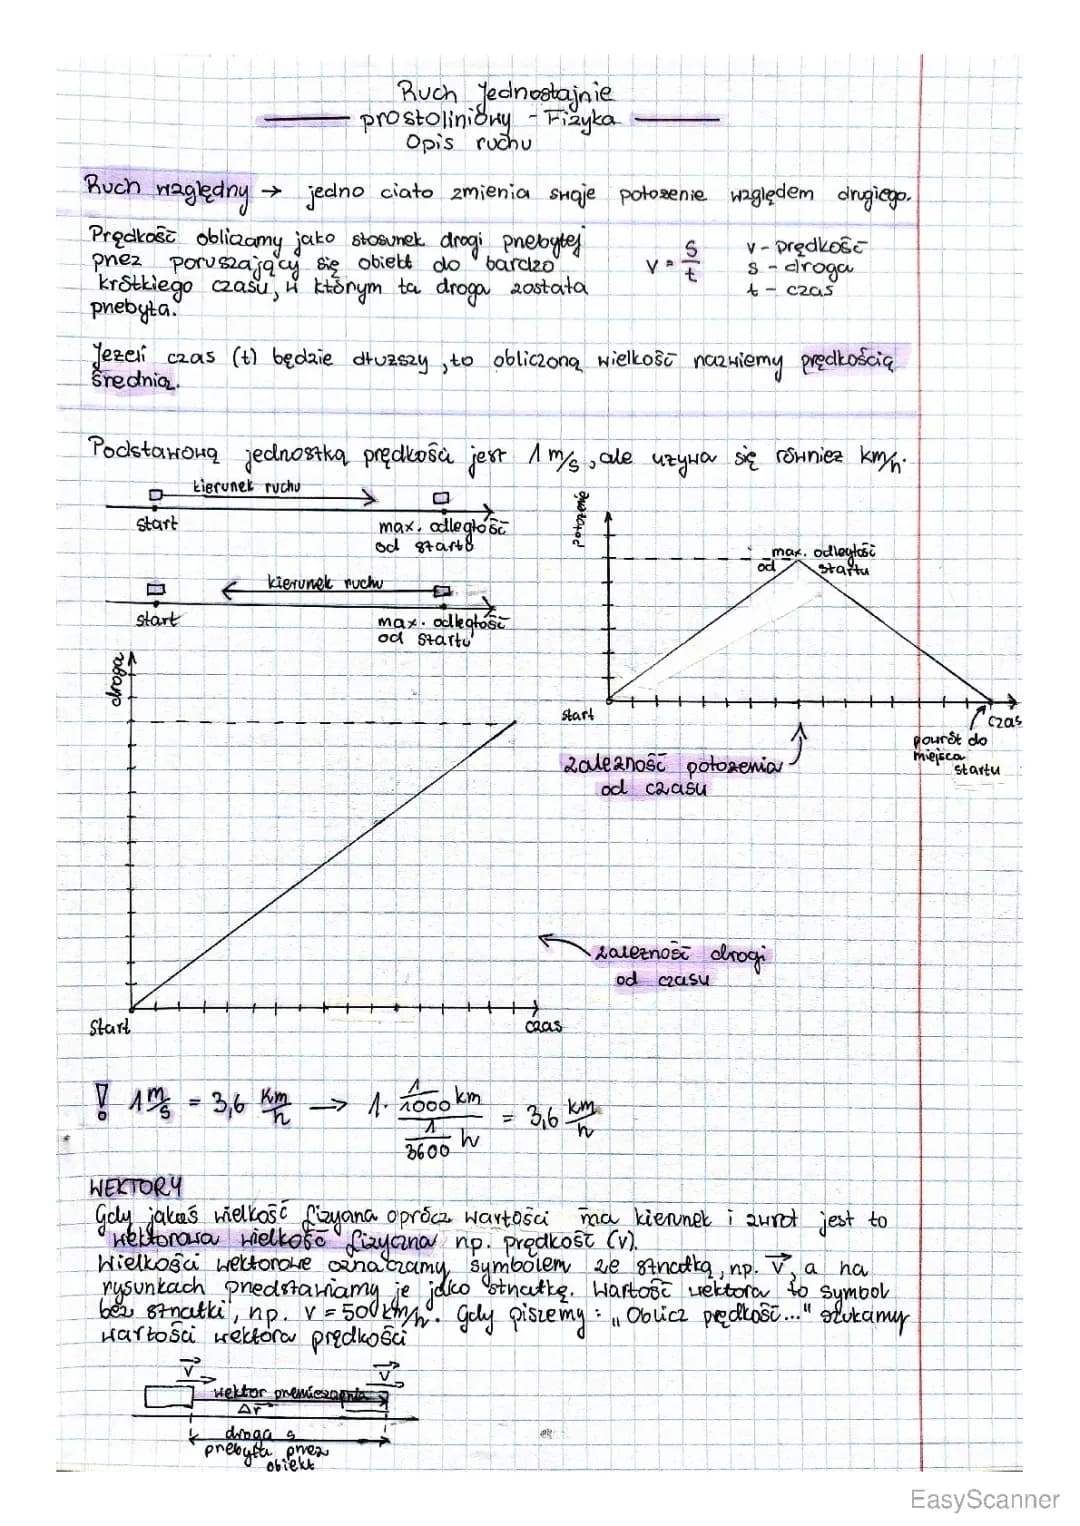 Ruch Jednostajnie
prostoliniowy - Fizyka
Opis ruchu
Ruch względny → jedno ciało zmienia swoje położenie względem drugiego.
Prędkość obliczamy jako stosunek drogi przebytej
przez poruszający się obiekt do bardzo
krótkiego czasu, w którym ta droga została
przebyta.
v = s/t
v - prędkość
s - droga
t - czas
Jeżeli czas (t) będzie dłuższy, to obliczoną wielkość nazwiemy prędkością
średnią.
Podstawową jednostką prędkości jest 1 m/s, ale używa się również km/h.
kierunek ruchu
start
max. odległość
od startu
kierunek ruchu
start
max. odległość
od startu
położenie
max. odległość
od startu
start
czas
powrót do
miejsca
startu
zależność położenia
od czasu
droga
Start
czas
zależność drogi
od czasu
! 1 m/s = 3,6 km/h → 1 · (1/1000 km)/(1/3600 h) = 3,6 km/h
WEKTORY
Gdy jakaś wielkość fizyczna oprócz wartości ma kierunek i zwrot jest to
wektorowa wielkość fizyczna np. prędkość (v).
Wielkości wektorowe oznaczamy symbolem ze strzałką, np. v⃗, a na
rysunkach przedstawiamy je jako strzałkę. Wartość wektora to symbol
bez strzałki, np. v = 500 km/h. Gdy piszemy: „Oblicz prędkość..." szukamy
wartości wektora prędkości
v⃗
v⃗
wektor przemieszczenia
Δr⃗
droga s
przebyta przez
obiekt
EasyScanner